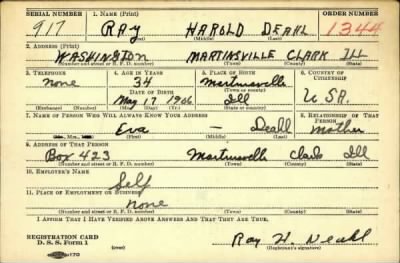 SERIAL NUMBER 1. NAME (Print) ORDER NUMBER
917 RAY HAROLD DEAHL 1344
(First) (Middle) (Last)
2. ADDRESS (Print)
WASHINGTON MARTINSVILLE CLARK ILL
(Number and street or R. F. D. number) (Town) (County) (State)
3. TELEPHONE 4. AGE IN YEARS 5. PLACE OF BIRTH 6. COUNTRY OF CITIZENSHIP
none 34 Martinsville
DATE OF BIRTH (Town or county)
May 17 1906 Ill U SA.
(Exchange) (Number) (Mo.) (Day) (Yr.) (State or country)
7. NAME OF PERSON WHO WILL ALWAYS KNOW YOUR ADDRESS 8. RELATIONSHIP OF THAT PERSON
Eva — Deahl mother
(First) (Middle) (Last)
9. ADDRESS OF THAT PERSON
Box 423 Martinsville Clark Ill
(Number and street or R. F. D. number) (Town) (County) (State)
10. EMPLOYER'S NAME
Self
11. PLACE OF EMPLOYMENT OR BUSINESS
none
(Number and street or R. F. D. number) (Town) (County) (State)
I AFFIRM THAT I HAVE VERIFIED ABOVE ANSWERS AND THAT THEY ARE TRUE.
REGISTRATION CARD
D. S. S. Form 1 (over) Ray H. Deahl
(Registrant's signature)